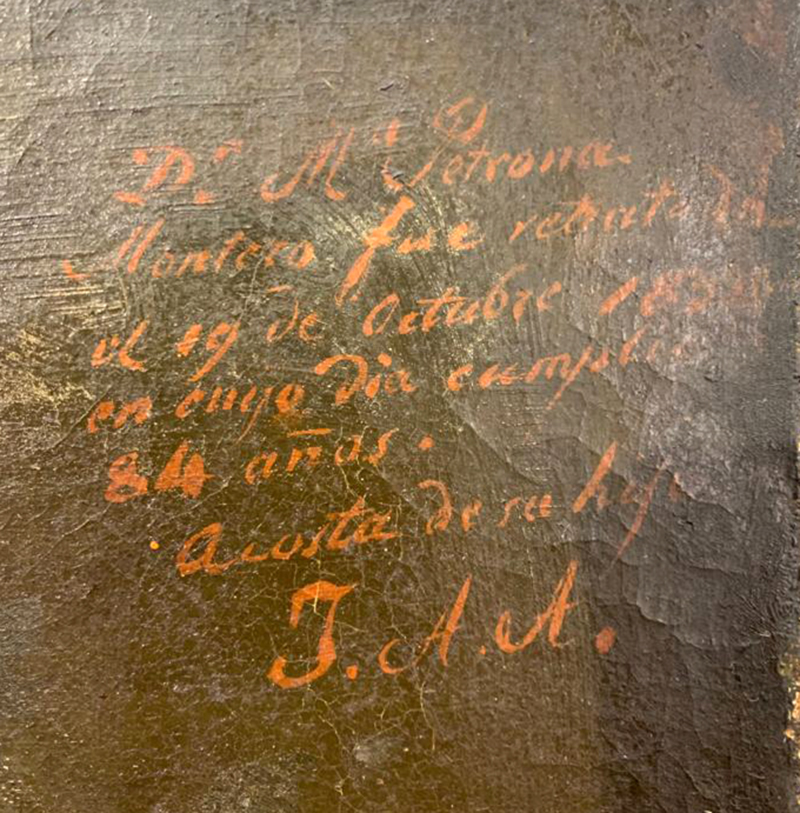 D.ª M.ª Petrona
Montero fue retratada
el 19 de Octubre
en cuyo Dia cumplio
84 años.
Acosta de su hijo
J. A. A.